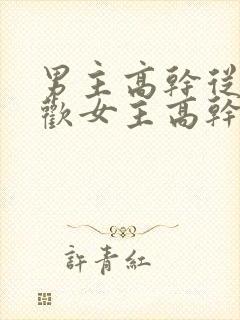 男主高幹從
歡女主高幹
許青紅